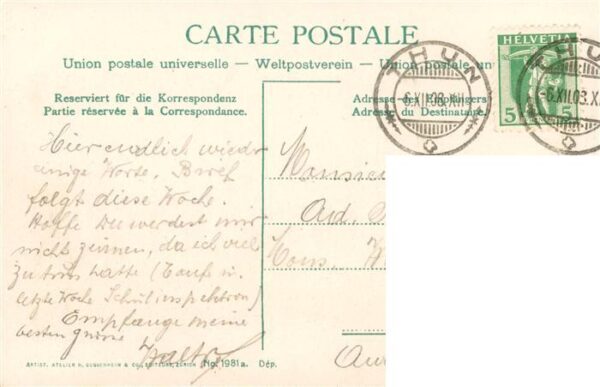 CARTE POSTALE
Union postale universelle – Weltpostverein – Union postale
Reserviert für die Korrespondenz
Partie réservée à la Correspondance.
Adresse des Empfängers
Adresse du Destinataire.
THUN
HELVETIA
5 5
Hier endlich wieder
einige Worte. Brief
folgt diese Woche.
Hoffe Du werdest mir
nicht zürnen, da ich viel
zu tun hatte (Tauf u.
letzte Woche Schulinspektion)
Empfange meine
besten Grüsse
Walter
Monsieur
Aud.
Cons.
ARTIST. ATELIER H. GUGGENHEIM & CO., EDITEURS, ZÜRICH No. 1981a. Dép.